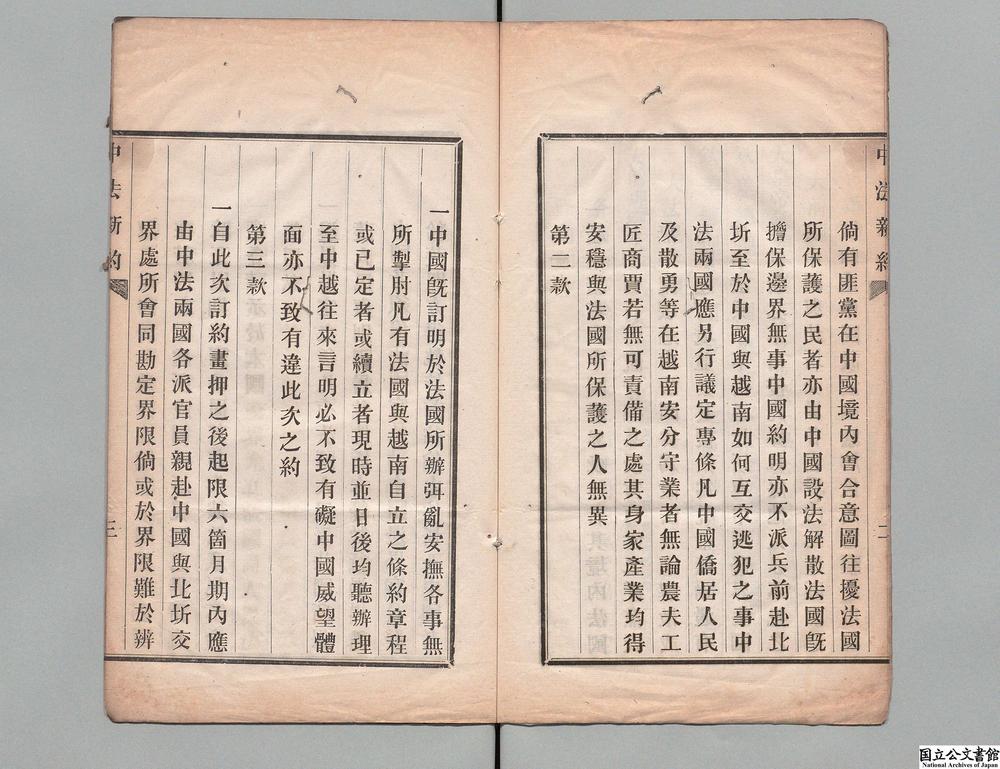 中法新約
二
倘有匪黨在中國境內會合意圖往擾法國
所保護之民者亦由中國設法解散法國旣
擔保邊界無事中國約明亦不派兵前赴北
圻至於中國與越南如何互交逃犯之事中
法兩國應另行議定專條凡中國僑居人民
及散勇等在越南安分守業者無論農夫工
匠商賈若無可責備之處其身家產業均得
安穩與法國所保護之人無異
第二款
一中國旣訂明於法國所辦弭亂安撫各事無
所掣肘凡有法國與越南自立之條約章程
或已定者或續立者現時並日後均聽辦理
至中越往來言明必不致有礙中國威望體
面亦不致有違此次之約
第三款
一自此次訂約畫押之後起限六箇月期內應
由中法兩國各派官員親赴中國與北圻交
界處所會同勘定界限倘或於界限難於辨
中法新約
三
国立公文書館
National Archives of Japan